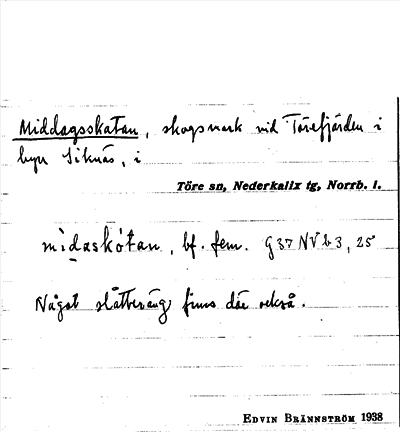 Middagsskatan, skogsmark vid Törefjärden i
byn Siknäs, i
Töre sn, Nederkalix tg, Norrb. l.
mìdaskòtan, bf. fem. G 37 NV b 3, 25
Något slåtteräng finns där också.
EDVIN BRÄNNSTRÖM 1938